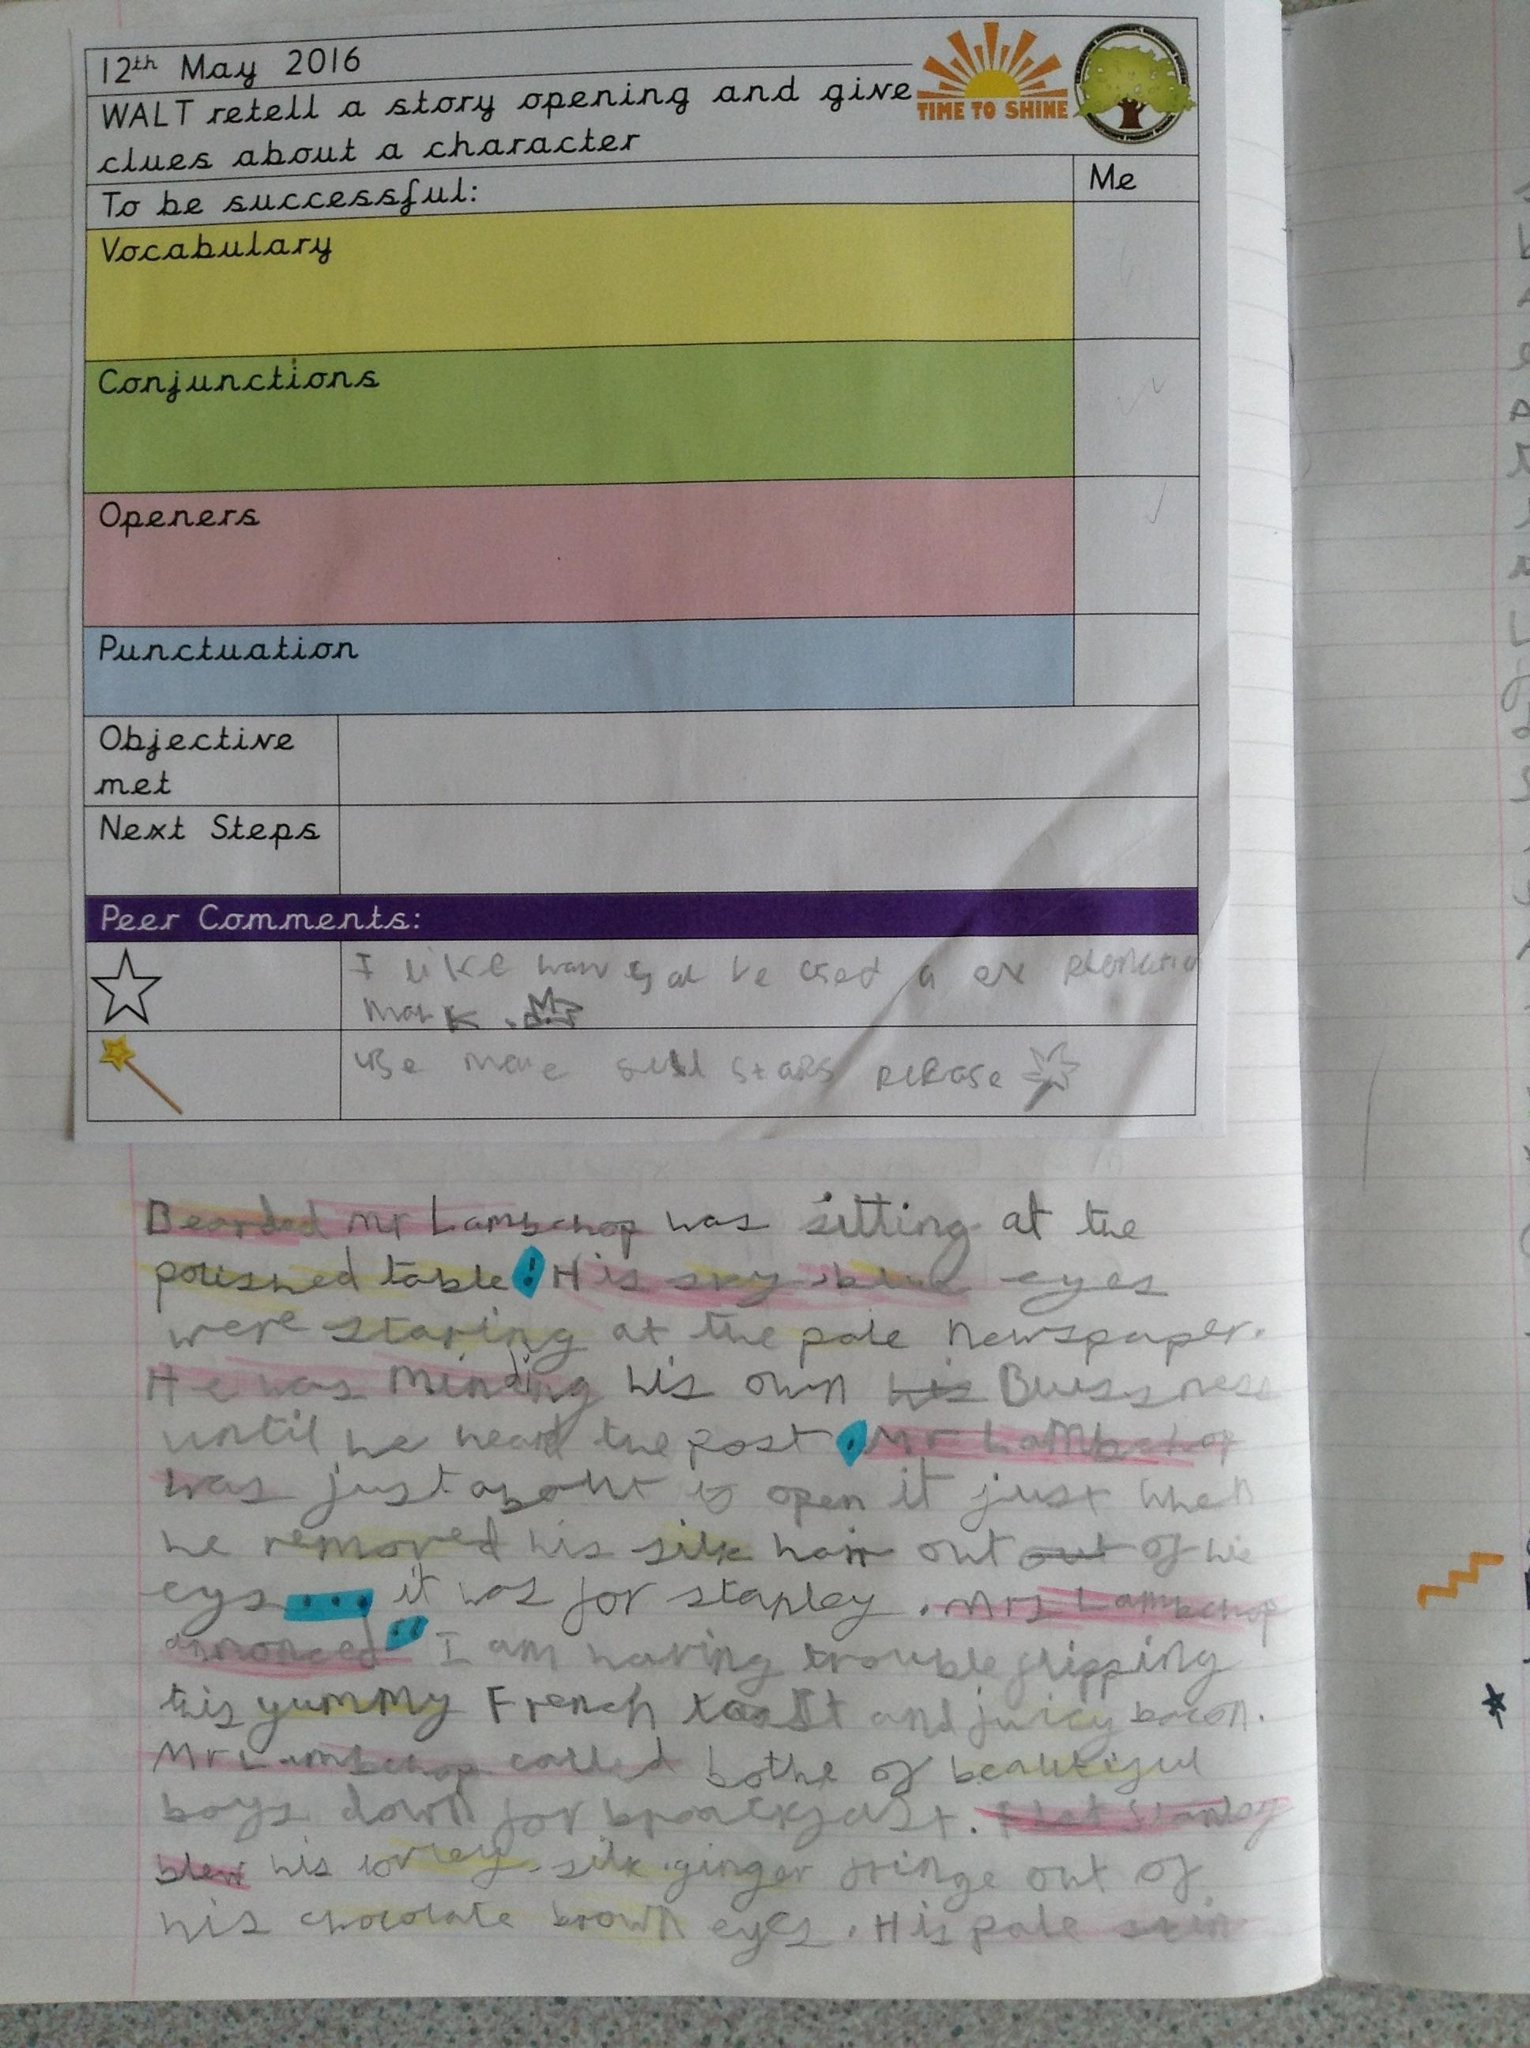 12th May 2016
WALT retell a story opening and give
clues about a character
TIME TO SHINE
To be successful:
Me
Vocabulary
Conjunctions
Openers
Punctuation
Objective
met
Next Steps
Peer Comments:
I like how used a ex
mark.
use more stars
Bearded mr Lambchop was sitting at the
polished table! His sky blue eyes
were staring at the pale newspaper.
He was minding his own his Buisness
until he heard the post. Mr Lambchop
was just about to open it just when
he removed his silk hair out out of his
eys... it was for stanley. Mrs Lambchop
annonced" I am having trouble flipping
this yummy French toast and juicy bacon.
Mr Lambchop called bothe of beautiful
boys down for breackfast. Flat Stanley
blew his silk ginger fringe out of
his chocolate brown eyes. His pale skin